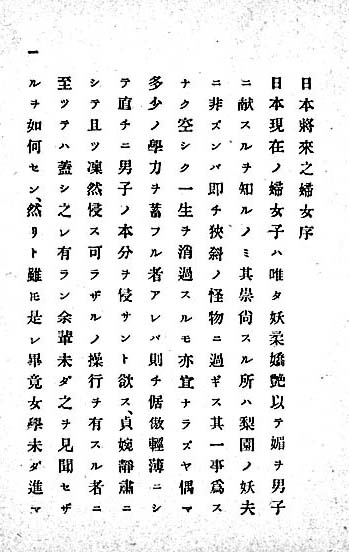 日本將來之婦女序
日本現在ノ婦女子ハ唯タ妖柔嬌艶以テ媚ヲ男子
ニ献スルヲ知ルノミ其崇尚スル所ハ梨園ノ妖夫
ニ非ズンバ即チ狹斜ノ怪物ニ過ギス其一事爲ス
ナク空シク一生ヲ消過スルモ亦宜ナラズヤ偶マ
多少ノ學力ヲ蓄フル者アレバ則チ倨傲輕薄ニシ
テ直チニ男子ノ本分ヲ侵サント欲ス、貞婉靜肅ニ
シテ且ツ凜然侵ス可ラザルノ操行ヲ有スル者ニ
至ツテハ蓋シ之レ有ラン余輩未ダ之ヲ見聞セザ
ルヲ如何セン、然リト雖𪜈是レ畢竟女學未ダ進マ
一